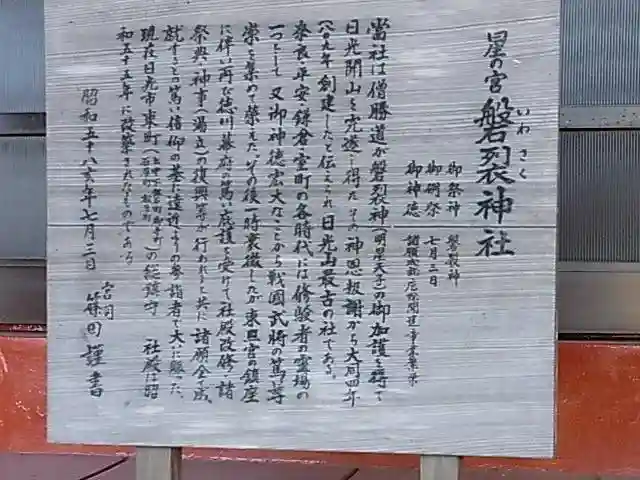 星の宮 磐裂神社
いわ さく
御祭神 磐裂神
御例祭 七月三日
御神徳 諸願成就 店運開運 事業繁栄
当社は僧勝道が磐裂神(明星天子)の御加護を得て
日光開山を完遂し得たその神恩報謝から大同四年
(八〇九年)創建したと伝えられ日光山最古の社である。
奈良平安鎌倉室町の各時代には修験者の霊場の
一つとして 又御神徳宏大なことから戦国武将の篤い尊
崇を集めて栄えた。その後一時衰微したが東照宮の鎮座
に伴い再び徳川幕府の篤い庇護を受けて社殿改修諸
祭典・神事(湯立)の復興等が行われると共に 諸願全て成
就するとの篤い信仰の基に遠近よりの参詣者で大に賑った。
現在日光市東町( )の総鎮守 社殿は昭
和五十五年に改築されたものである。
昭和五十八癸亥年七月三日
宮司 篠田 謹書